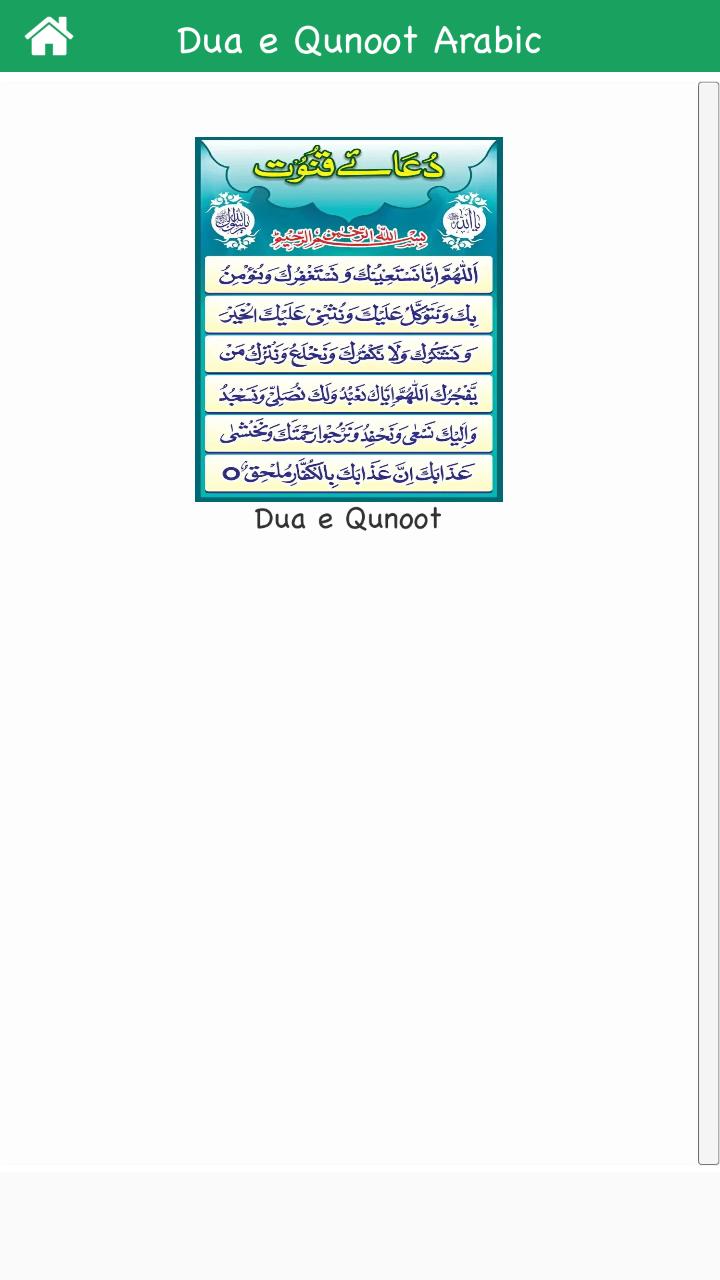 Dua e Qunoot Arabic
دُعَائے قنُوت
یا اللہ
یا رسول اللہ
بِسْمِ اللهِ الرَّحْمٰنِ الرَّحِيْمِ
اَللّٰهُمَّ اِنَّا نَسْتَعِيْنُكَ وَ نَسْتَغْفِرُكَ وَنُؤْمِنُ
بِكَ وَنَتَوَكَّلُ عَلَيْكَ وَنُثْنِیْ عَلَيْكَ الْخَيْرَ
وَ نَشْكُرُكَ وَلَا نَكْفُرُكَ وَنَخْلَعُ وَنَتْرُكُ مَنْ
يَّفْجُرُكَ اَللّٰهُمَّ اِيَّاكَ نَعْبُدُ وَلَكَ نُصَلِّیْ وَنَسْجُدُ
وَاِلَيْكَ نَسْعٰی وَنَحْفِدُ وَنَرْجُوْا رَحْمَتَكَ وَنَخْشٰی
عَذَابَكَ اِنَّ عَذَابَكَ بِالْكُفَّارِ مُلْحِقٌ
Dua e Qunoot